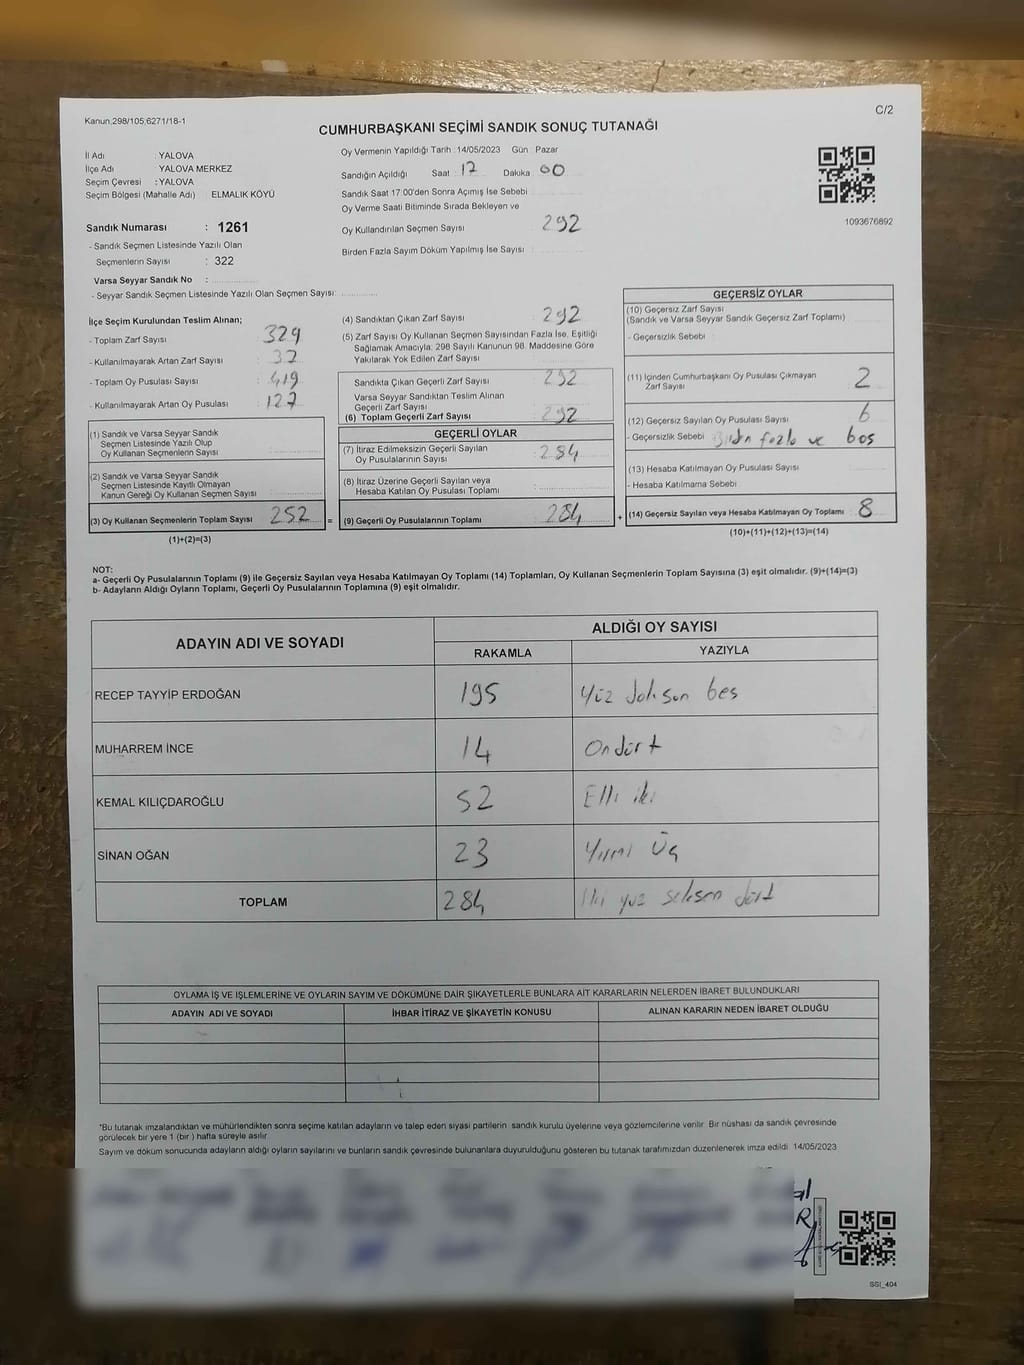 Kanun,298/105,6271/18-1
C/2
CUMHURBAŞKANI SEÇİMİ SANDIK SONUÇ TUTANAĞI
İl Adı : YALOVA
İlçe Adı : YALOVA MERKEZ
Seçim Çevresi : YALOVA
Seçim Bölgesi (Mahalle Adı) ELMALIK KÖYÜ
Sandık Numarası : 1261
- Sandık Seçmen Listesinde Yazılı Olan
Seçmenlerin Sayısı : 322
Varsa Seyyar Sandık No :
- Seyyar Sandık Seçmen Listesinde Yazılı Olan Seçmen Sayısı:
Oy Vermenin Yapıldığı Tarih :14/05/2023 Gün : Pazar
Sandığın Açıldığı Saat : 17 Dakika : 00
Sandık Saat 17:00'den Sonra Açımış İse Sebebi
Oy Verme Saati Bitiminde Sırada Bekleyen ve
Oy Kullandırılan Seçmen Sayısı : 292
Birden Fazla Sayım Döküm Yapılmış İse Sayısı :
1093676892
İlçe Seçim Kurulundan Teslim Alınan;
- Toplam Zarf Sayısı : 329
- Kullanılmayarak Artan Zarf Sayısı : 37
- Toplam Oy Pusulası Sayısı : 419
- Kullanılmayarak Artan Oy Pusulası : 127
(1) Sandık ve Varsa Seyyar Sandık
Seçmen Listesinde Yazılı Olup
Oy Kullanan Seçmenlerin Sayısı :
(2) Sandık ve Varsa Seyyar Sandık
Seçmen Listesinde Kayıtlı Olmayan
Kanun Gereği Oy Kullanan Seçmen Sayısı :
(3) Oy Kullanan Seçmenlerin Toplam Sayısı : 252 =
(1)+(2)=(3)
(4) Sandıktan Çıkan Zarf Sayısı : 292
(5) Zarf Sayısı Oy Kullanan Seçmen Sayısından Fazla İse, Eşitliği
Sağlamak Amacıyla; 298 Sayılı Kanunun 98. Maddesine Göre
Yakılarak Yok Edilen Zarf Sayısı :
Sandıkta Çıkan Geçerli Zarf Sayısı : 292
Varsa Seyyar Sandıktan Teslim Alınan
Geçerli Zarf Sayısı :
(6) Toplam Geçerli Zarf Sayısı : 292
GEÇERLİ OYLAR
(7) İtiraz Edilmeksizin Geçerli Sayılan
Oy Pusulalarının Sayısı : 284
(8) İtiraz Üzerine Geçerli Sayılan veya
Hesaba Katılan Oy Pusulası Toplamı :
(9) Geçerli Oy Pusulalarının Toplamı : 284 +
GEÇERSİZ OYLAR
(10) Geçersiz Zarf Sayısı
(Sandık ve Varsa Seyyar Sandık Geçersiz Zarf Toplamı)
- Geçersizlik Sebebi :
(11) İçinden Cumhurbaşkanı Oy Pusulası Çıkmayan
Zarf Sayısı : 2
(12) Geçersiz Sayılan Oy Pusulası Sayısı : 6
- Geçersizlik Sebebi : Birden fazla ve boş
(13) Hesaba Katılmayan Oy Pusulası Sayısı :
- Hesaba Katılmama Sebebi :
(14) Geçersiz Sayılan veya Hesaba Katılmayan Oy Toplamı : 8
(10)+(11)+(12)+(13)=(14)
NOT:
a- Geçerli Oy Pusulalarının Toplamı (9) ile Geçersiz Sayılan veya Hesaba Katılmayan Oy Toplamı (14) Toplamları, Oy Kullanan Seçmenlerin Toplam Sayısına (3) eşit olmalıdır. (9)+(14)=(3)
b- Adayların Aldığı Oyların Toplamı, Geçerli Oy Pusulalarının Toplamına (9) eşit olmalıdır.
ADAYIN ADI VE SOYADI
ALDIĞI OY SAYISI
RAKAMLA YAZIYLA
RECEP TAYYİP ERDOĞAN 195 Yüz doksan beş
MUHARREM İNCE 14 Ondört
KEMAL KILIÇDAROĞLU 52 Elli iki
SİNAN OĞAN 23 Yirmi Üç
TOPLAM 284 İki yüz seksen dört
OYLAMA İŞ VE İŞLEMLERİNE VE OYLARIN SAYIM VE DÖKÜMÜNE DAİR ŞİKAYETLERLE BUNLARA AİT KARARLARIN NELERDEN İBARET BULUNDUKLARI
ADAYIN ADI VE SOYADI İHBAR İTİRAZ VE ŞİKAYETİN KONUSU ALINAN KARARIN NEDEN İBARET OLDUĞU
*Bu tutanak imzalandıktan ve mühürlendikten sonra seçime katılan adayların ve talep eden siyasi partilerin sandık kurulu üyelerine veya gözlemcilerine verilir. Bir nüshası da sandık çevresinde
görülecek bir yere 1 (bir ) hafta süreyle asılır
Sayım ve döküm sonucunda adayların aldığı oyların sayılarını ve bunların sandık çevresinde bulunanlara duyurulduğunu gösteren bu tutanak tarafımızdan düzenlenerek imza edildi. 14/05/2023
SSI_404